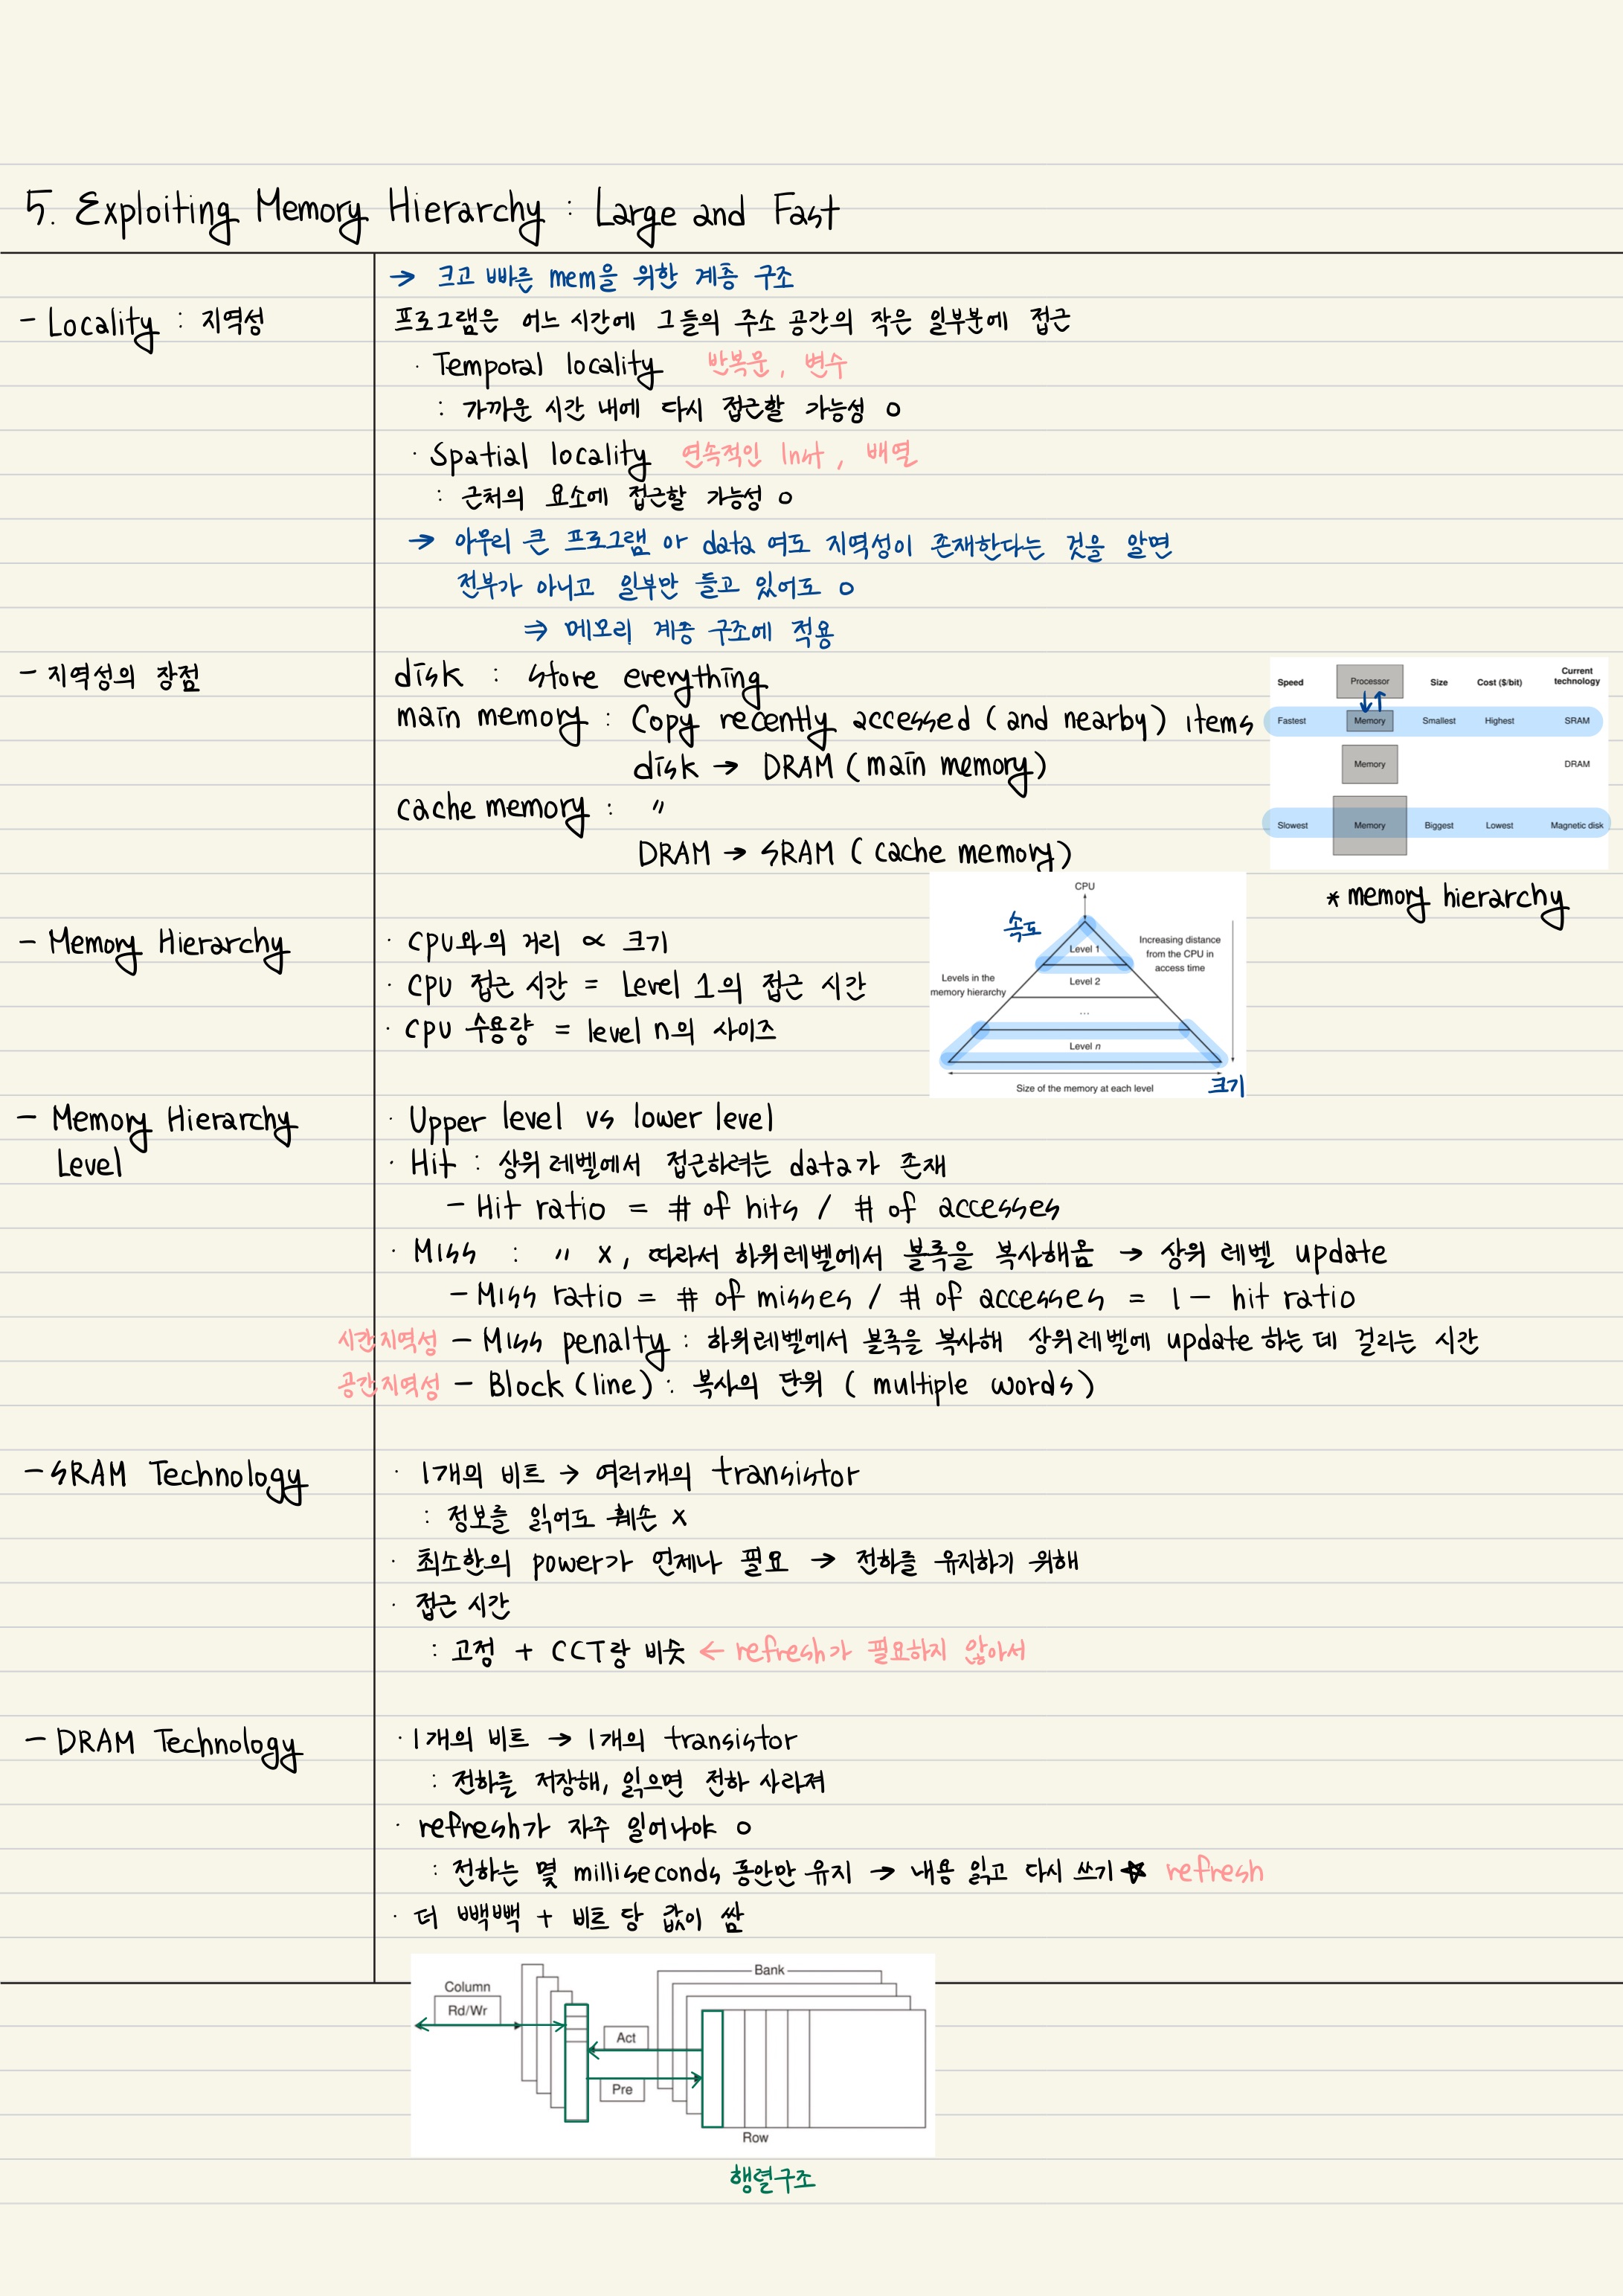 5. Exploiting Memory Hierarchy : Large and Fast
→ 크고 빠른 mem을 위한 계층 구조
- Locality : 지역성
프로그램은 어느 시간에 그들의 주소 공간의 작은 일부분에 접근
· Temporal locality 반복문, 변수
: 가까운 시간 내에 다시 접근할 가능성 o
· Spatial locality 연속적인 Inst, 배열
: 근처의 요소에 접근할 가능성 o
→ 아무리 큰 프로그램 or data 여도 지역성이 존재한다는 것을 알면
전부가 아니고 일부만 들고 있어도 o
⇒ 메모리 계층 구조에 적용
- 지역성의 장점
disk : store everything
main memory : Copy recently accessed (and nearby) items
disk → DRAM (main memory)
cache memory : "
DRAM → SRAM (cache memory)
Speed Processor Size Cost ($/bit) Current technology
Fastest Memory Smallest Highest SRAM
Memory DRAM
Slowest Memory Biggest Lowest Magnetic disk
* memory hierarchy
- Memory Hierarchy
· CPU와의 거리 ∝ 크기
· CPU 접근 시간 = Level 1의 접근 시간
· CPU 수용량 = level n의 사이즈
CPU
속도
Level 1
Increasing distance
from the CPU in
access time
Levels in the
memory hierarchy
Level 2
...
Level n
Size of the memory at each level
크기
- Memory Hierarchy
Level
· Upper level vs lower level
· Hit : 상위 레벨에서 접근하려는 data가 존재
- Hit ratio = # of hits / # of accesses
· Miss : " x, 따라서 하위레벨에서 블록을 복사해옴 → 상위 레벨 update
- Miss ratio = # of misses / # of accesses = 1 - hit ratio
시간지역성 - Miss penalty : 하위레벨에서 블록을 복사해 상위레벨에 update 하는 데 걸리는 시간
공간지역성 - Block (line) : 복사의 단위 ( multiple words)
- SRAM Technology
· 1개의 비트 → 여러개의 transistor
: 정보를 읽어도 훼손 x
· 최소한의 power가 언제나 필요 → 전하를 유지하기 위해
· 접근 시간
: 고정 + CCT랑 비슷 ← refresh가 필요하지 않아서
- DRAM Technology
· 1개의 비트 → 1개의 transistor
: 전하를 저장해, 읽으면 전하 사라져
· refresh가 자주 일어나야 o
: 전하는 몇 milliseconds 동안만 유지 → 내용 읽고 다시 쓰기 ☆ refresh
· 더 빽빽 + 비트 당 값이 쌈
Column
Rd/Wr
Bank
Act
Pre
Row
행렬구조